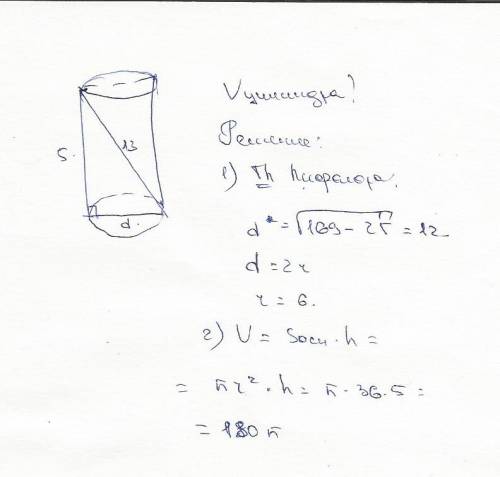 Vцилиндра?
Решение:
1) Th Пифагора.
5.
13
d.
d = √169 - 25 = 12
d = 2r
r = 6.
2) V = Sосн · h =
= πr² · h = π · 36 · 5 =
= 180 π